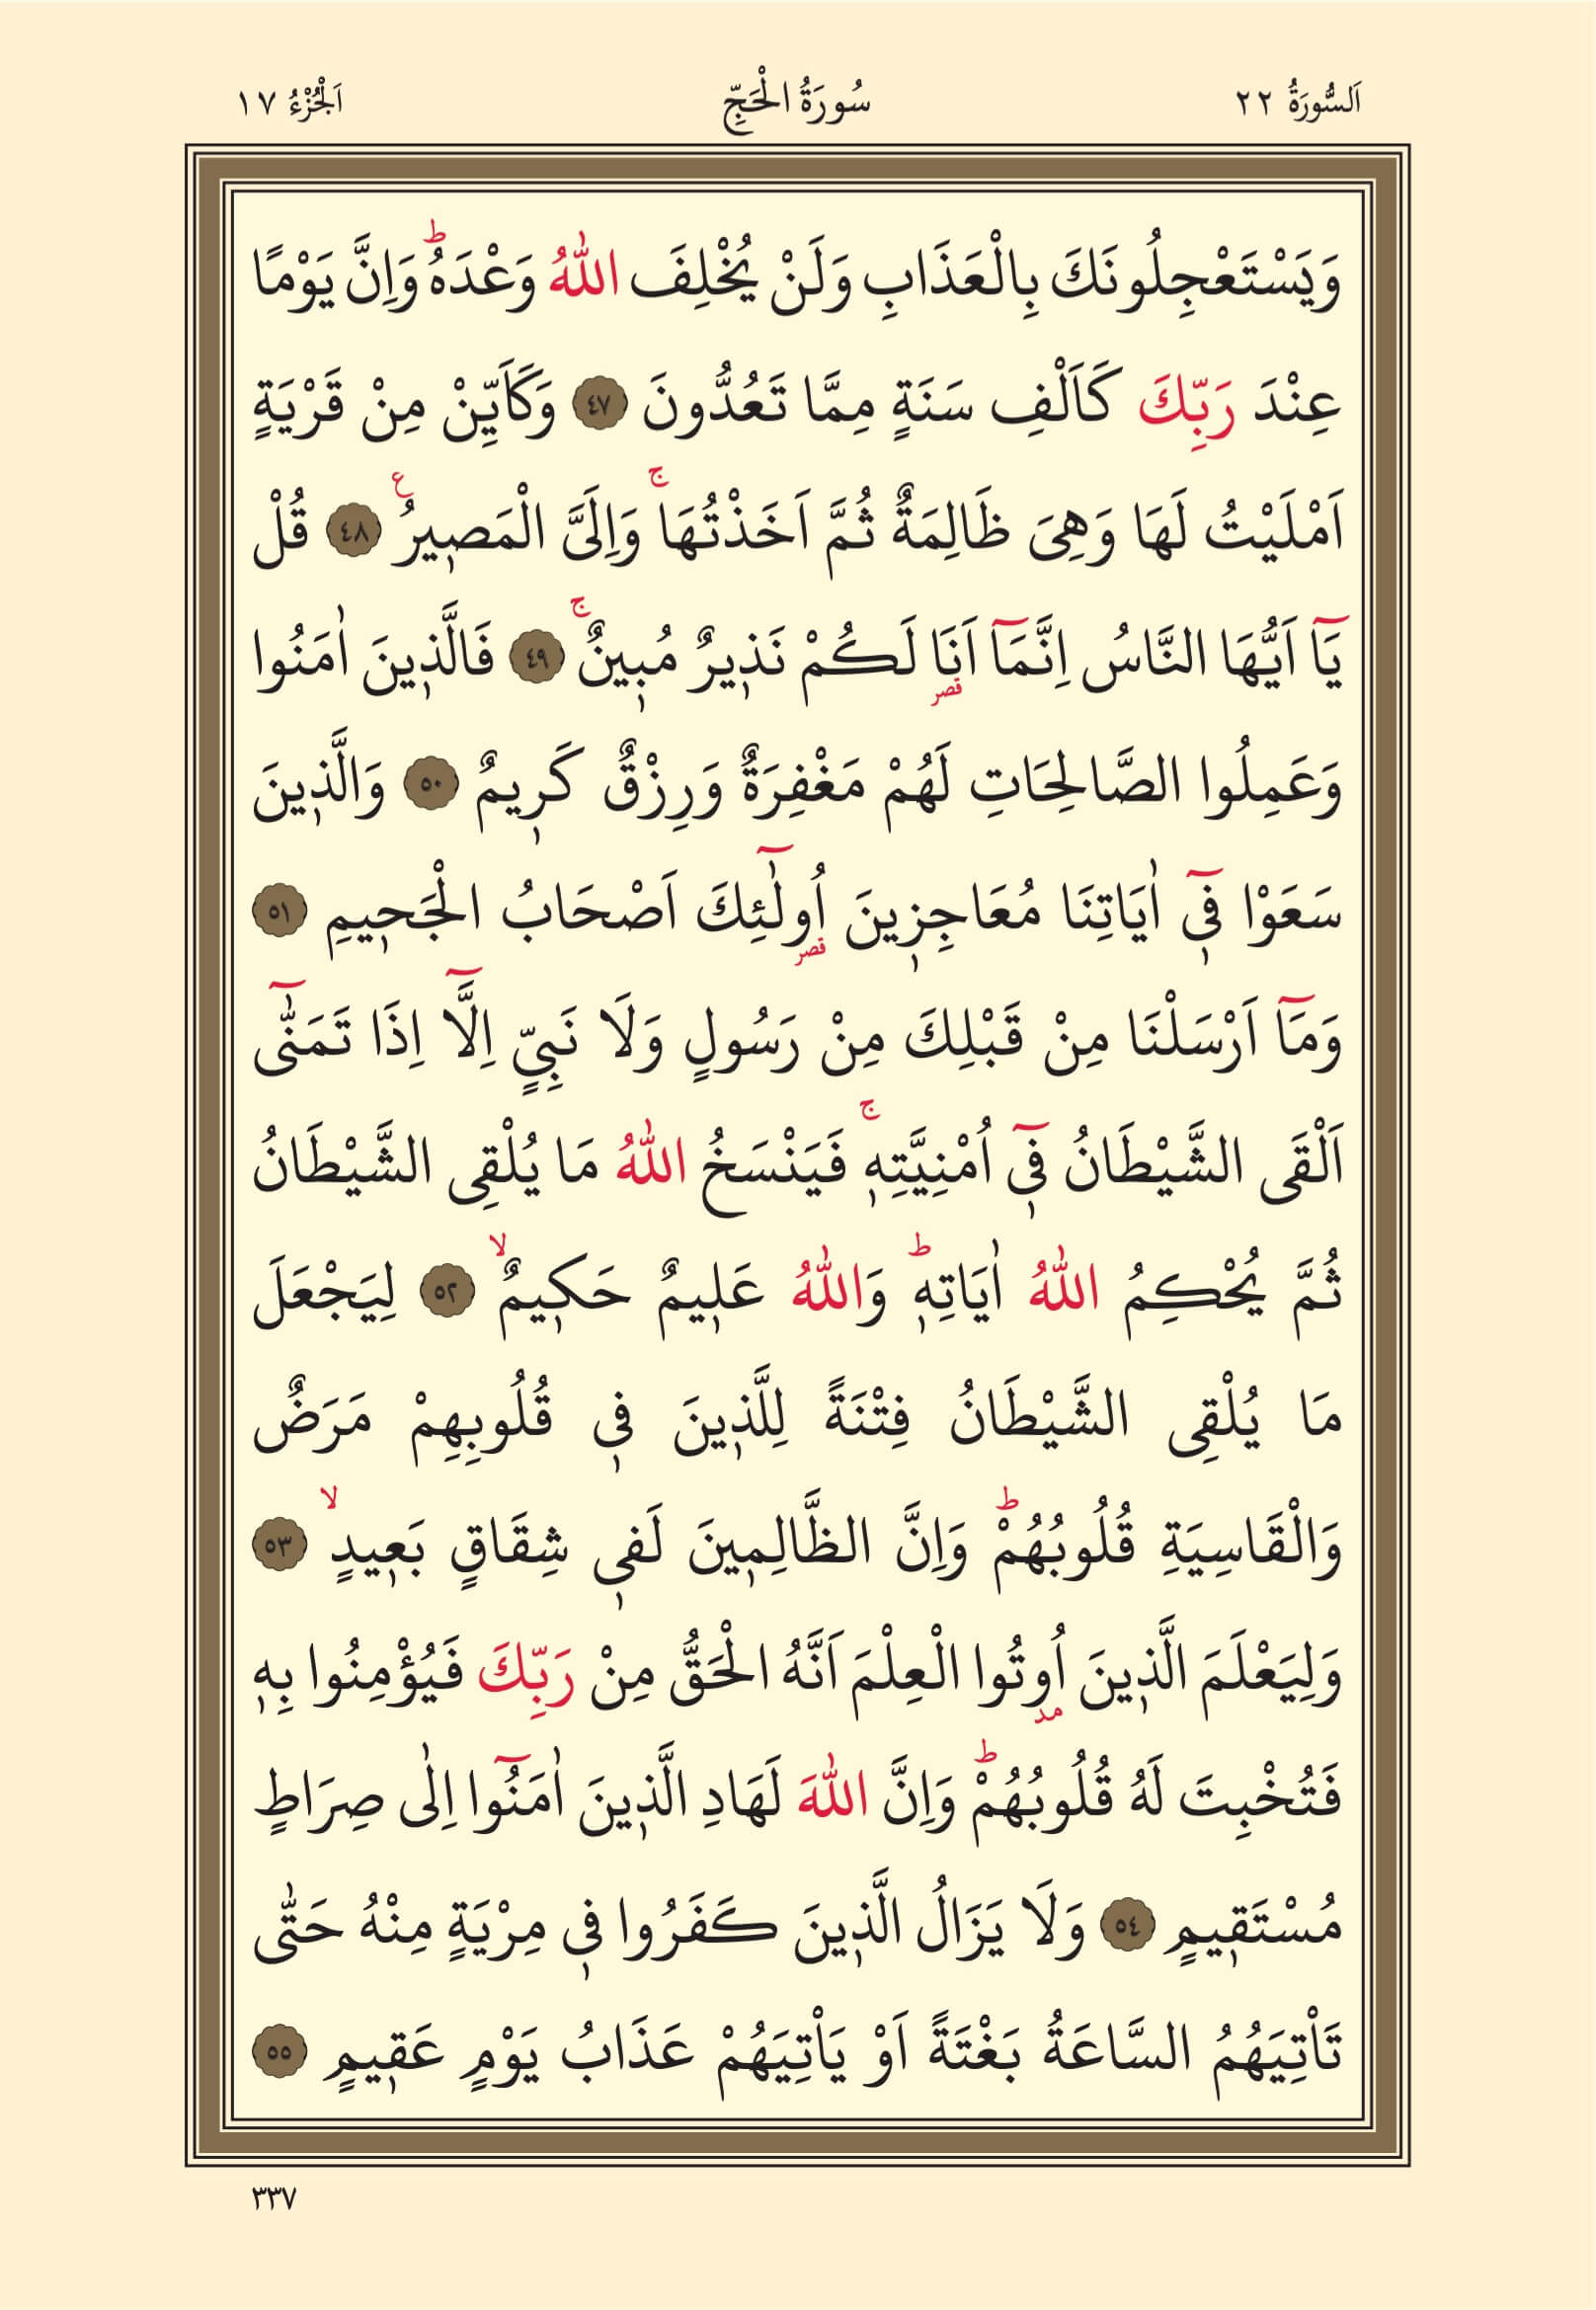 اَلسُّورَةُ ٢٢ سُورَةُ الْحَجِّ اَلْجُزْءُ ١٧
وَيَسْتَعْجِلُونَكَ بِالْعَذَابِ وَلَنْ يُخْلِفَ اللّٰهُ وَعْدَهُۜ وَاِنَّ يَوْمًا
عِنْدَ رَبِّكَ كَاَلْفِ سَنَةٍ مِمَّا تَعُدُّونَ ﴿٤٧﴾ وَكَاَيِّنْ مِنْ قَرْيَةٍ
اَمْلَيْتُ لَهَا وَهِيَ ظَالِمَةٌ ثُمَّ اَخَذْتُهَاۚ وَاِلَيَّ الْمَص۪يرُ ع ﴿٤٨﴾ قُلْ
يَٓا اَيُّهَا النَّاسُ اِنَّمَٓا اَنَا۬ لَكُمْ نَذ۪يرٌ مُب۪ينٌۚ ﴿٤٩﴾ فَالَّذ۪ينَ اٰمَنُوا
قصر
وَعَمِلُوا الصَّالِحَاتِ لَهُمْ مَغْفِرَةٌ وَرِزْقٌ كَر۪يمٌ ﴿٥٠﴾ وَالَّذ۪ينَ
سَعَوْا ف۪ٓي اٰيَاتِنَا مُعَاجِز۪ينَ اُولٰٓئِكَ اَصْحَابُ الْجَح۪يمِ ﴿٥١﴾
قصر
وَمَٓا اَرْسَلْنَا مِنْ قَبْلِكَ مِنْ رَسُولٍ وَلَا نَبِيٍّ اِلَّٓا اِذَا تَمَنّٰىٓ
اَلْقَى الشَّيْطَانُ ف۪ٓي اُمْنِيَّتِه۪ۚ فَيَنْسَخُ اللّٰهُ مَا يُلْقِي الشَّيْطَانُ
ثُمَّ يُحْكِمُ اللّٰهُ اٰيَاتِه۪ۜ وَاللّٰهُ عَل۪يمٌ حَك۪يمٌۙ ﴿٥٢﴾ لِيَجْعَلَ
مَا يُلْقِي الشَّيْطَانُ فِتْنَةً لِلَّذ۪ينَ ف۪ي قُلُوبِهِمْ مَرَضٌ
وَالْقَاسِيَةِ قُلُوبُهُمْۜ وَاِنَّ الظَّالِم۪ينَ لَف۪ي شِقَاقٍ بَع۪يدٍۙ ﴿٥٣﴾
وَلِيَعْلَمَ الَّذ۪ينَ اُوتُوا الْعِلْمَ اَنَّهُ الْحَقُّ مِنْ رَبِّكَ فَيُؤْمِنُوا بِه۪
مد
فَتُخْبِتَ لَهُ قُلُوبُهُمْۜ وَاِنَّ اللّٰهَ لَهَادِ الَّذ۪ينَ اٰمَنُٓوا اِلٰى صِرَاطٍ
مُسْتَق۪يمٍ ﴿٥٤﴾ وَلَا يَزَالُ الَّذ۪ينَ كَفَرُوا ف۪ي مِرْيَةٍ مِنْهُ حَتّٰى
تَأْتِيَهُمُ السَّاعَةُ بَغْتَةً اَوْ يَأْتِيَهُمْ عَذَابُ يَوْمٍ عَق۪يمٍ ﴿٥٥﴾
٣٣٧